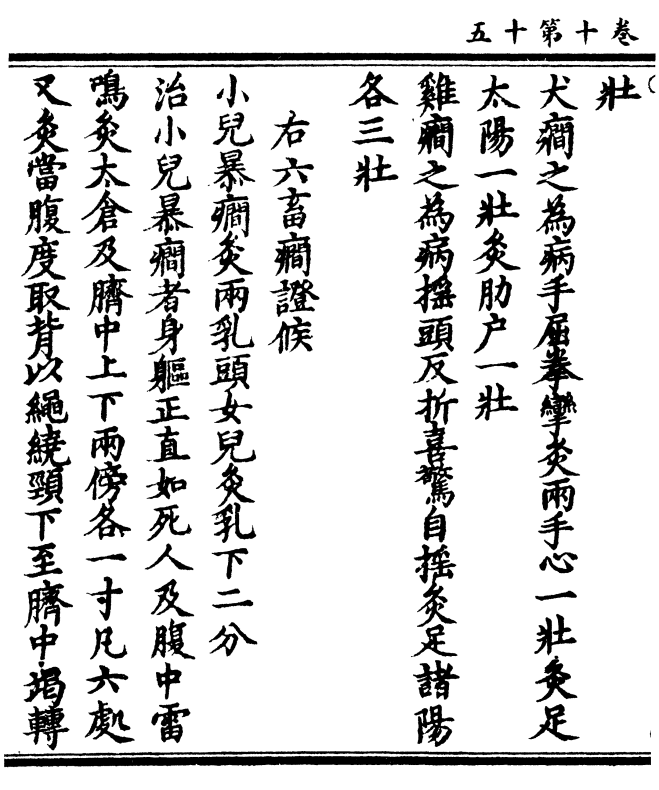 卷十第十五
壯
犬癎之為病手屈拳攣灸兩手心一壯灸足
太陽一壯灸肋户一壯
雞癎之為病揺頭反折喜驚自揺灸足諸陽
各三壯
右六畜癎證候
小兒暴癎灸兩乳頭女兒灸乳下二分
治小兒暴癎者身軀正直如死人及腹中雷
鳴灸太倉及臍中上下兩傍各一寸凡六處
又灸當腹度取背以繩繞頸下至臍中竭轉